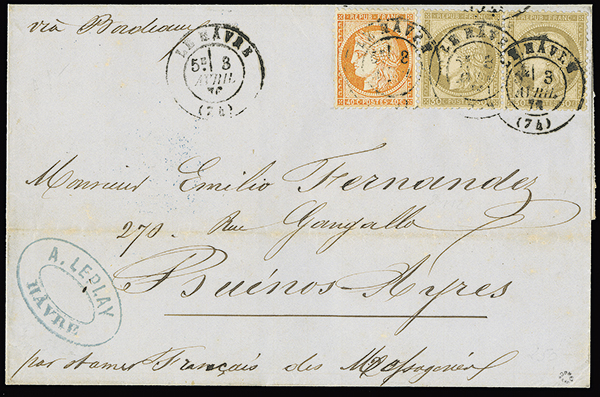 via Bordeaux
LE HAVRE
5E 3
AVRIL
76
(74)
REPUB. FRANC.
40 C. POSTES 40 C.
LE HAVRE
REPUB. FRANC.
POSTES
LE HAVRE
3
AVRIL
76
(74)
REPUB. FRANC.
Monsieur Emilio Fernandez
270 - Rue Gangallo
Buénos-Ayres
A. LEPLAY
HÂVRE
par steamer Français des Messageries